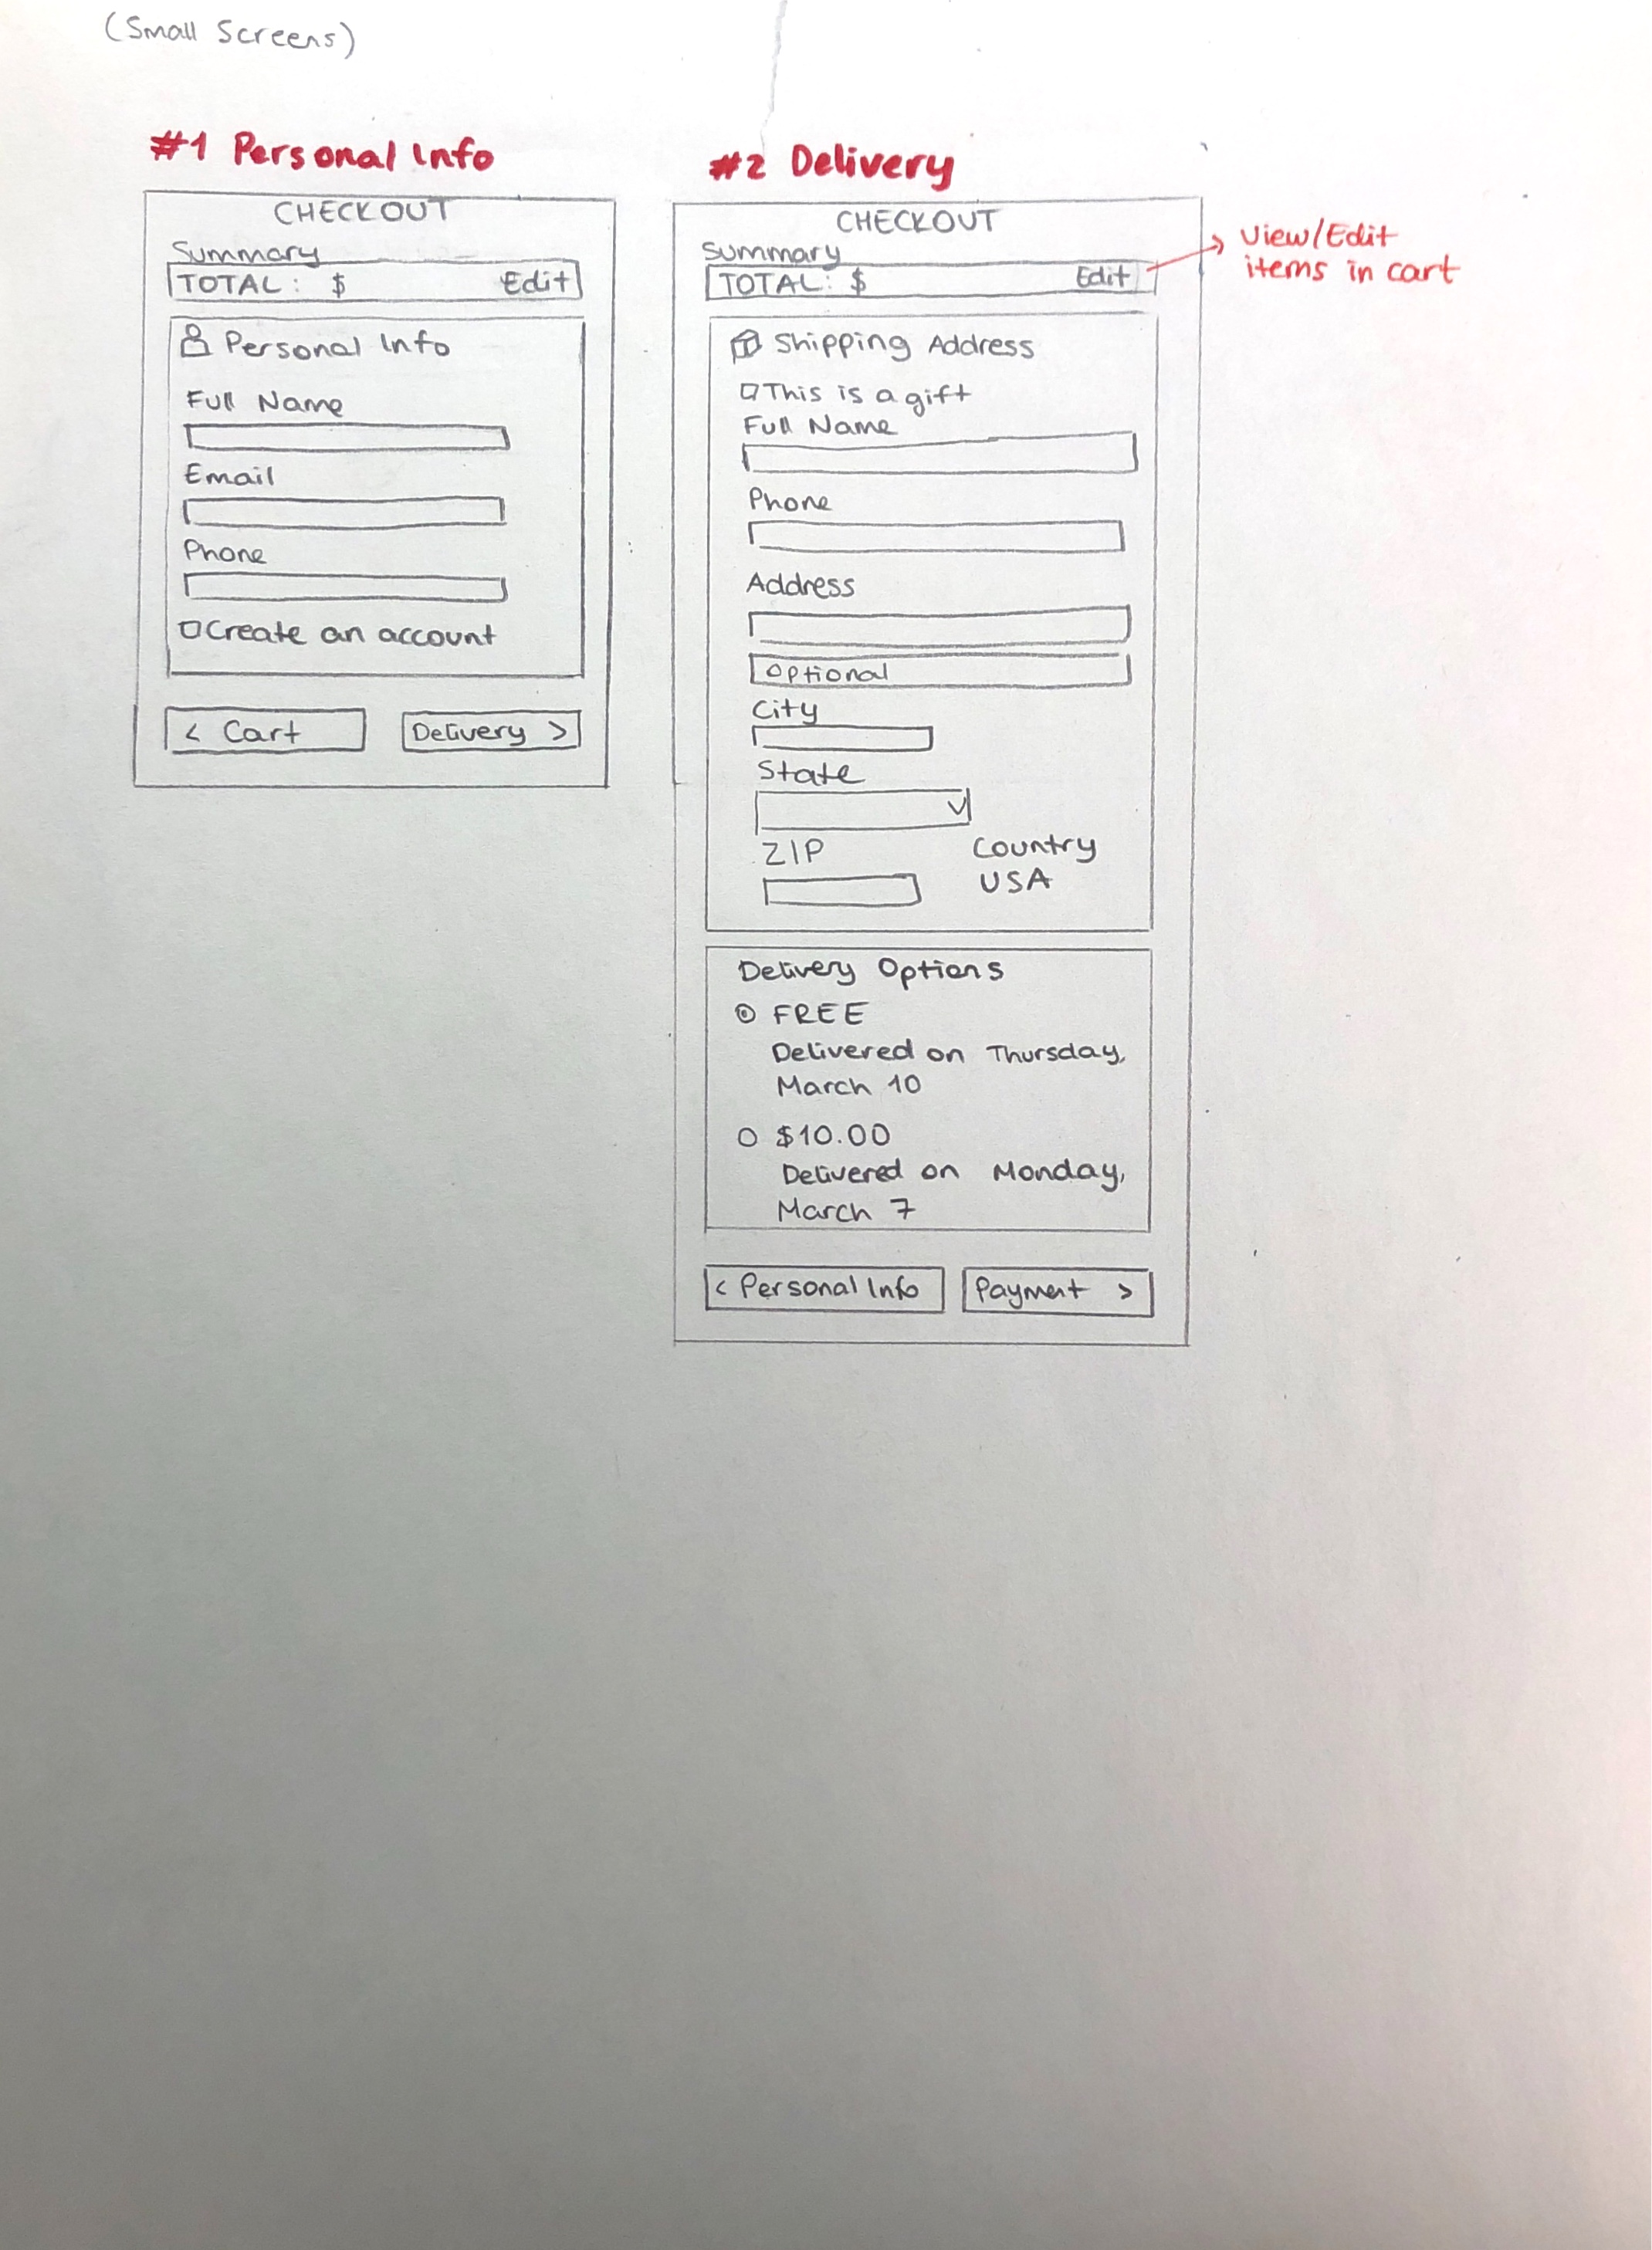 (Small Screens)
#1 Personal Info
CHECKOUT
Summary
TOTAL: $ Edit
Personal Info
Full Name
Email
Phone
Create an account
< Cart
Delivery >
#2 Delivery
CHECKOUT
Summary
TOTAL: $ Edit
View/Edit
items in cart
Shipping Address
This is a gift
Full Name
Phone
Address
Optional
City
State
ZIP Country
USA
Delivery Options
FREE
Delivered on Thursday,
March 10
$10.00
Delivered on Monday,
March 7
< Personal Info
Payment >